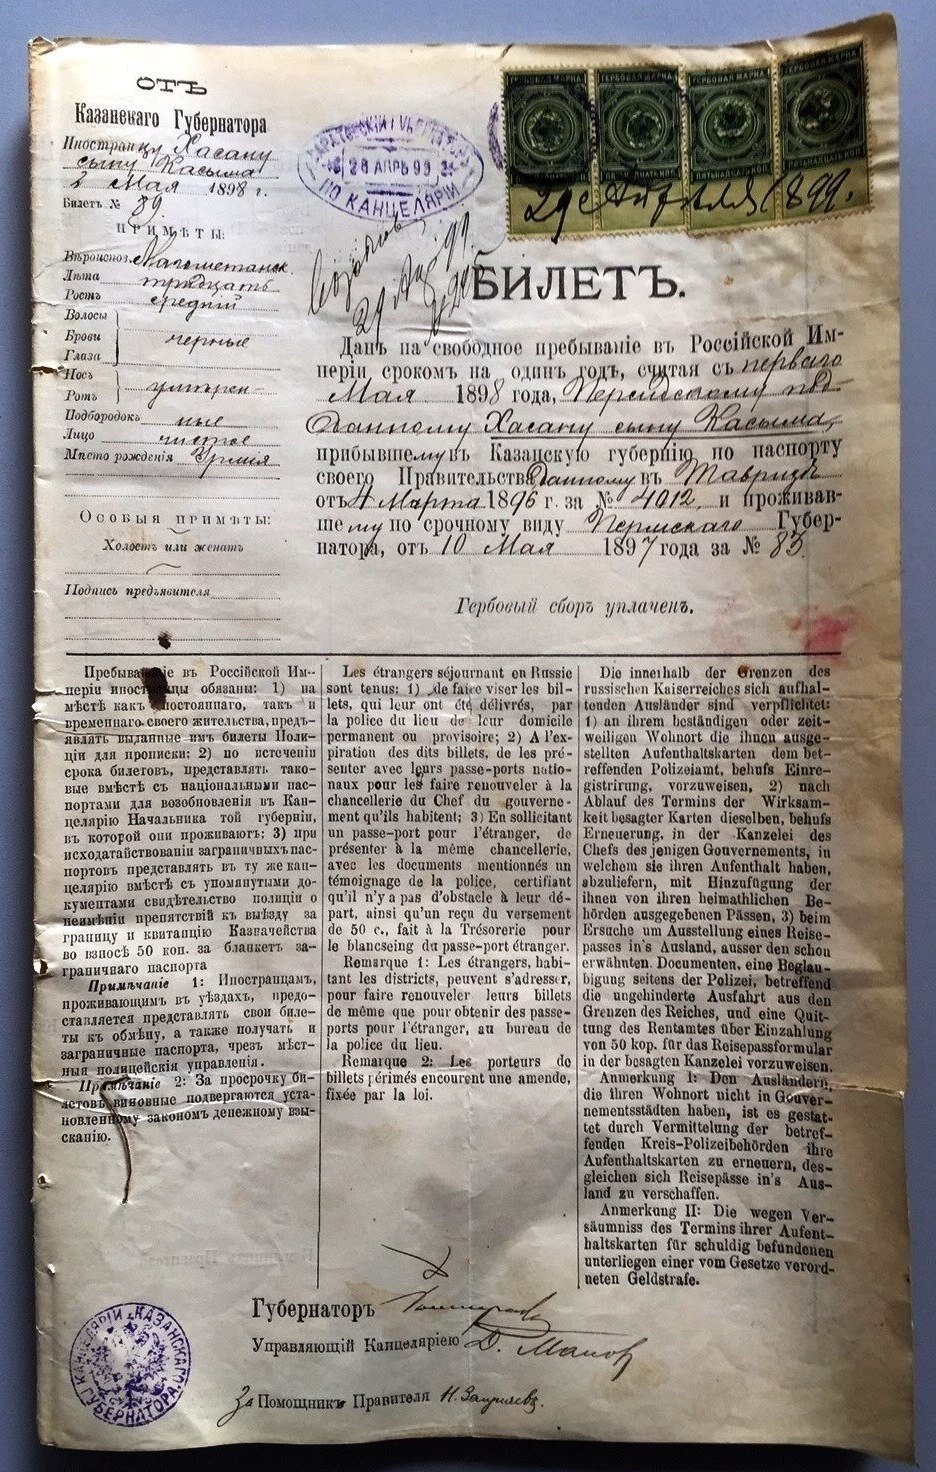 ОТЪ
Казанскаго Губернатора
Иностранцу Хасану
сыну Касыма
2 Мая 1898 г.
Билетъ № 89.
ПРИМѢТЫ:
Вѣроиспов. Магометанск.
Лѣта тридцать
Ростъ средній
Волосы
Брови черные
Глаза
Носъ
Ротъ умѣрен-
Подбородокъ ные
Лицо чистое
Мѣсто рожденія Урмія
Особыя примѣты:
Холостъ или женатъ
Подпись предъявителя
28 АПРѢ 99
ПО КАНЦЕЛЯРІИ
ГЕРБОВАЯ МАРКА ГЕРБОВАЯ МАРКА ГЕРБОВАЯ МАРКА ГЕРБОВАЯ МАРКА
29 Апрѣля 1899.
БИЛЕТЪ.
Данъ на свободное пребываніе въ Россійской Им-
періи срокомъ на одинъ годъ, считая съ перваго
Мая 1898 года, Персидскому под-
данному Хасану сыну Касыма,
прибывшему въ Казанскую губернію по паспорту
своего Правительства данному въ Тавризѣ
отъ 4 Марта 1896 г. за № 4012, и проживав-
шему по срочному виду Пермскаго Губер-
натора, отъ 10 Мая 1897 года за № 83.
Гербовый сборъ уплаченъ.
Пребываніе въ Россійской Им-
періи иностранцы обязаны: 1) на
мѣстѣ какъ постояннаго, такъ и
временнаго своего жительства, предъ-
являть выданные имъ билеты Поли-
ціи для прописки; 2) по истеченіи
срока билетовъ, представлять тако-
вые вмѣстѣ съ національными пас-
портами для возобновленія въ Кан-
целярію Начальника той губерніи,
въ которой они проживаютъ; 3) при
исходатайствованіи заграничныхъ пас-
портовъ представлять въ ту же кан-
целярію вмѣстѣ съ упомянутыми до-
кументами свидѣтельство полиціи о
неимѣніи препятствій къ выѣзду за
границу и квитанцію Казначейства
во взносѣ 50 коп. за бланкетъ за-
граничнаго паспорта
Примѣчаніе 1: Иностранцамъ,
проживающимъ въ уѣздахъ, предо-
ставляется представлять свои биле-
ты къ обмѣну, а также получать и
заграничные паспорта, чрезъ мѣст-
ныя полицейскія управленія.
Примѣчаніе 2: За просрочку би-
летовъ виновные подвергаются уста-
новленному закономъ денежному взы-
сканію.
Les étrangers séjournant en Russie
sont tenus: 1) de faire viser les bil-
lets, qui leur ont été délivrés, par
la police du lieu de leur domicile
permanent ou provisoire; 2) A l'ex-
piration des dits billets, de les pré-
senter avec leurs passe-ports natio-
naux pour les faire renouveler à la
chancellerie du Chef du gouverne-
ment qu'ils habitent; 3) En sollicitant
un passe-port pour l'étranger, de
présenter à la même chancellerie,
avec les documents mentionnés un
témoignage de la police, certifiant
qu'il n'y a pas d'obstacle à leur dé-
part, ainsi qu'un reçu du versement
de 50 c., fait à la Trésorerie pour
le blancseing du passe-port étranger.
Remarque 1: Les étrangers, habi-
tant les districts, peuvent s'adresser,
pour faire renouveler leurs billets
de même que pour obtenir des passe-
ports pour l'étranger, au bureau de
la police du lieu.
Remarque 2: Les porteurs de
billets périmés encourent une amende,
fixée par la loi.
Die innerhalb der Grenzen des
russischen Kaiserreiches sich aufhal-
tenden Ausländer sind verpflichtet:
1) an ihrem beständigen oder zeit-
weiligen Wohnort die ihnen ausge-
stellten Aufenthaltskarten dem bet-
reffenden Polizeiamt, behufs Einre-
gistrirung, vorzuweisen, 2) nach
Ablauf des Termins der Wirksam-
keit besagter Karten dieselben, behufs
Erneuerung, in der Kanzelei des
Chefs des jenigen Gouvernements, in
welchem sie ihren Aufenthalt haben,
abzuliefern, mit Hinzufügung der
ihnen von ihren heimathlichen Be-
hörden ausgegebenen Pässen, 3) beim
Ersuche um Ausstellung eines Reise-
passes in's Ausland, ausser den schon
erwähnten Documenten, eine Beglau-
bigung seitens der Polizei, betreffend
die ungehinderte Ausfahrt aus den
Grenzen des Reiches, und eine Quit-
tung des Rentamtes über Einzahlung
von 50 kop. für das Reisepassformular
in der besagten Kanzelei vorzuweisen.
Anmerkung I: Den Ausländern,
die ihren Wohnort nicht in Gouver-
nementsstädten haben, ist es gestat-
tet durch Vermittelung der betref-
fenden Kreis-Polizeibehörden ihre
Aufenthaltskarten zu erneuern, des-
gleichen sich Reisepässe in's Aus-
land zu verschaffen.
Anmerkung II: Die wegen Ver-
säumniss des Termins ihrer Aufent-
haltskarten für schuldig befundenen
unterliegen einer vom Gesetze verord-
neten Geldstrafe.
Губернаторъ
Управляющій Канцеляріею
За Помощникъ Правителя
КАНЦЕЛЯРІИ КАЗАНСКАГО ГУБЕРНАТОРА